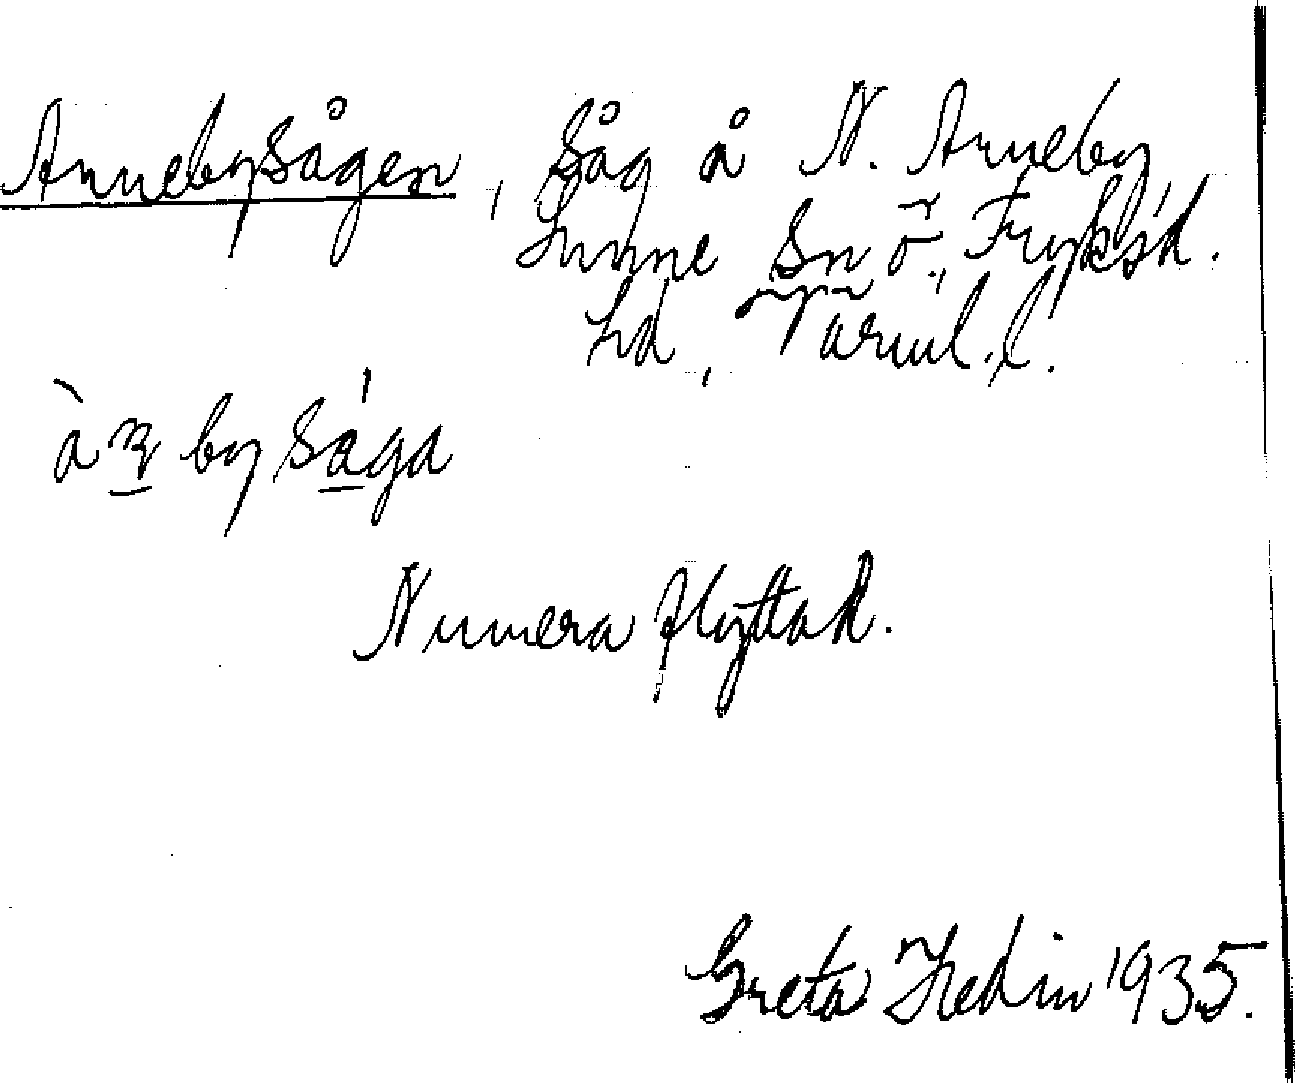 Arnebysågen, Såg å N. Arneby
Sunne Sn Ö. Fryksd.
hd, Värml. l.
bysåga
Numera flyttad.
Greta Hedin 1935.